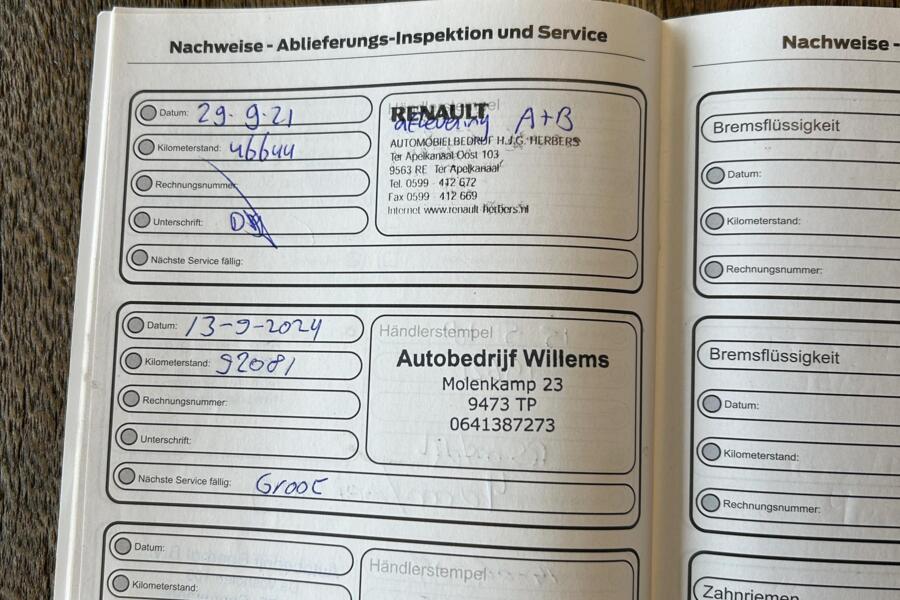 Nachweise - Ablieferungs-Inspektion und Service
Datum: 29-9-21
Kilometerstand: 46644
Rechnungsnummer:
Unterschrift:
Nächste Service fällig:
Händlerstempel
RENAULT
aflevering A+B
AUTOMOBIELBEDRIJF H.J.G. HERBERS
Ter Apelkanaal Oost 103
9563 RE Ter Apelkanaal
Tel. 0599 - 412 672
Fax 0599 - 412 669
Internet www.renault-herbers.nl
Datum: 13-9-2024
Kilometerstand: 92081
Rechnungsnummer:
Unterschrift:
Nächste Service fällig: Groot
Händlerstempel
Autobedrijf Willems
Molenkamp 23
9473 TP
0641387273
Datum:
Kilometerstand:
Händlerstempel
Nachweise -
Bremsflüssigkeit
Datum:
Kilometerstand:
Rechnungsnummer:
Bremsflüssigkeit
Datum:
Kilometerstand:
Rechnungsnummer:
Zahnriemen